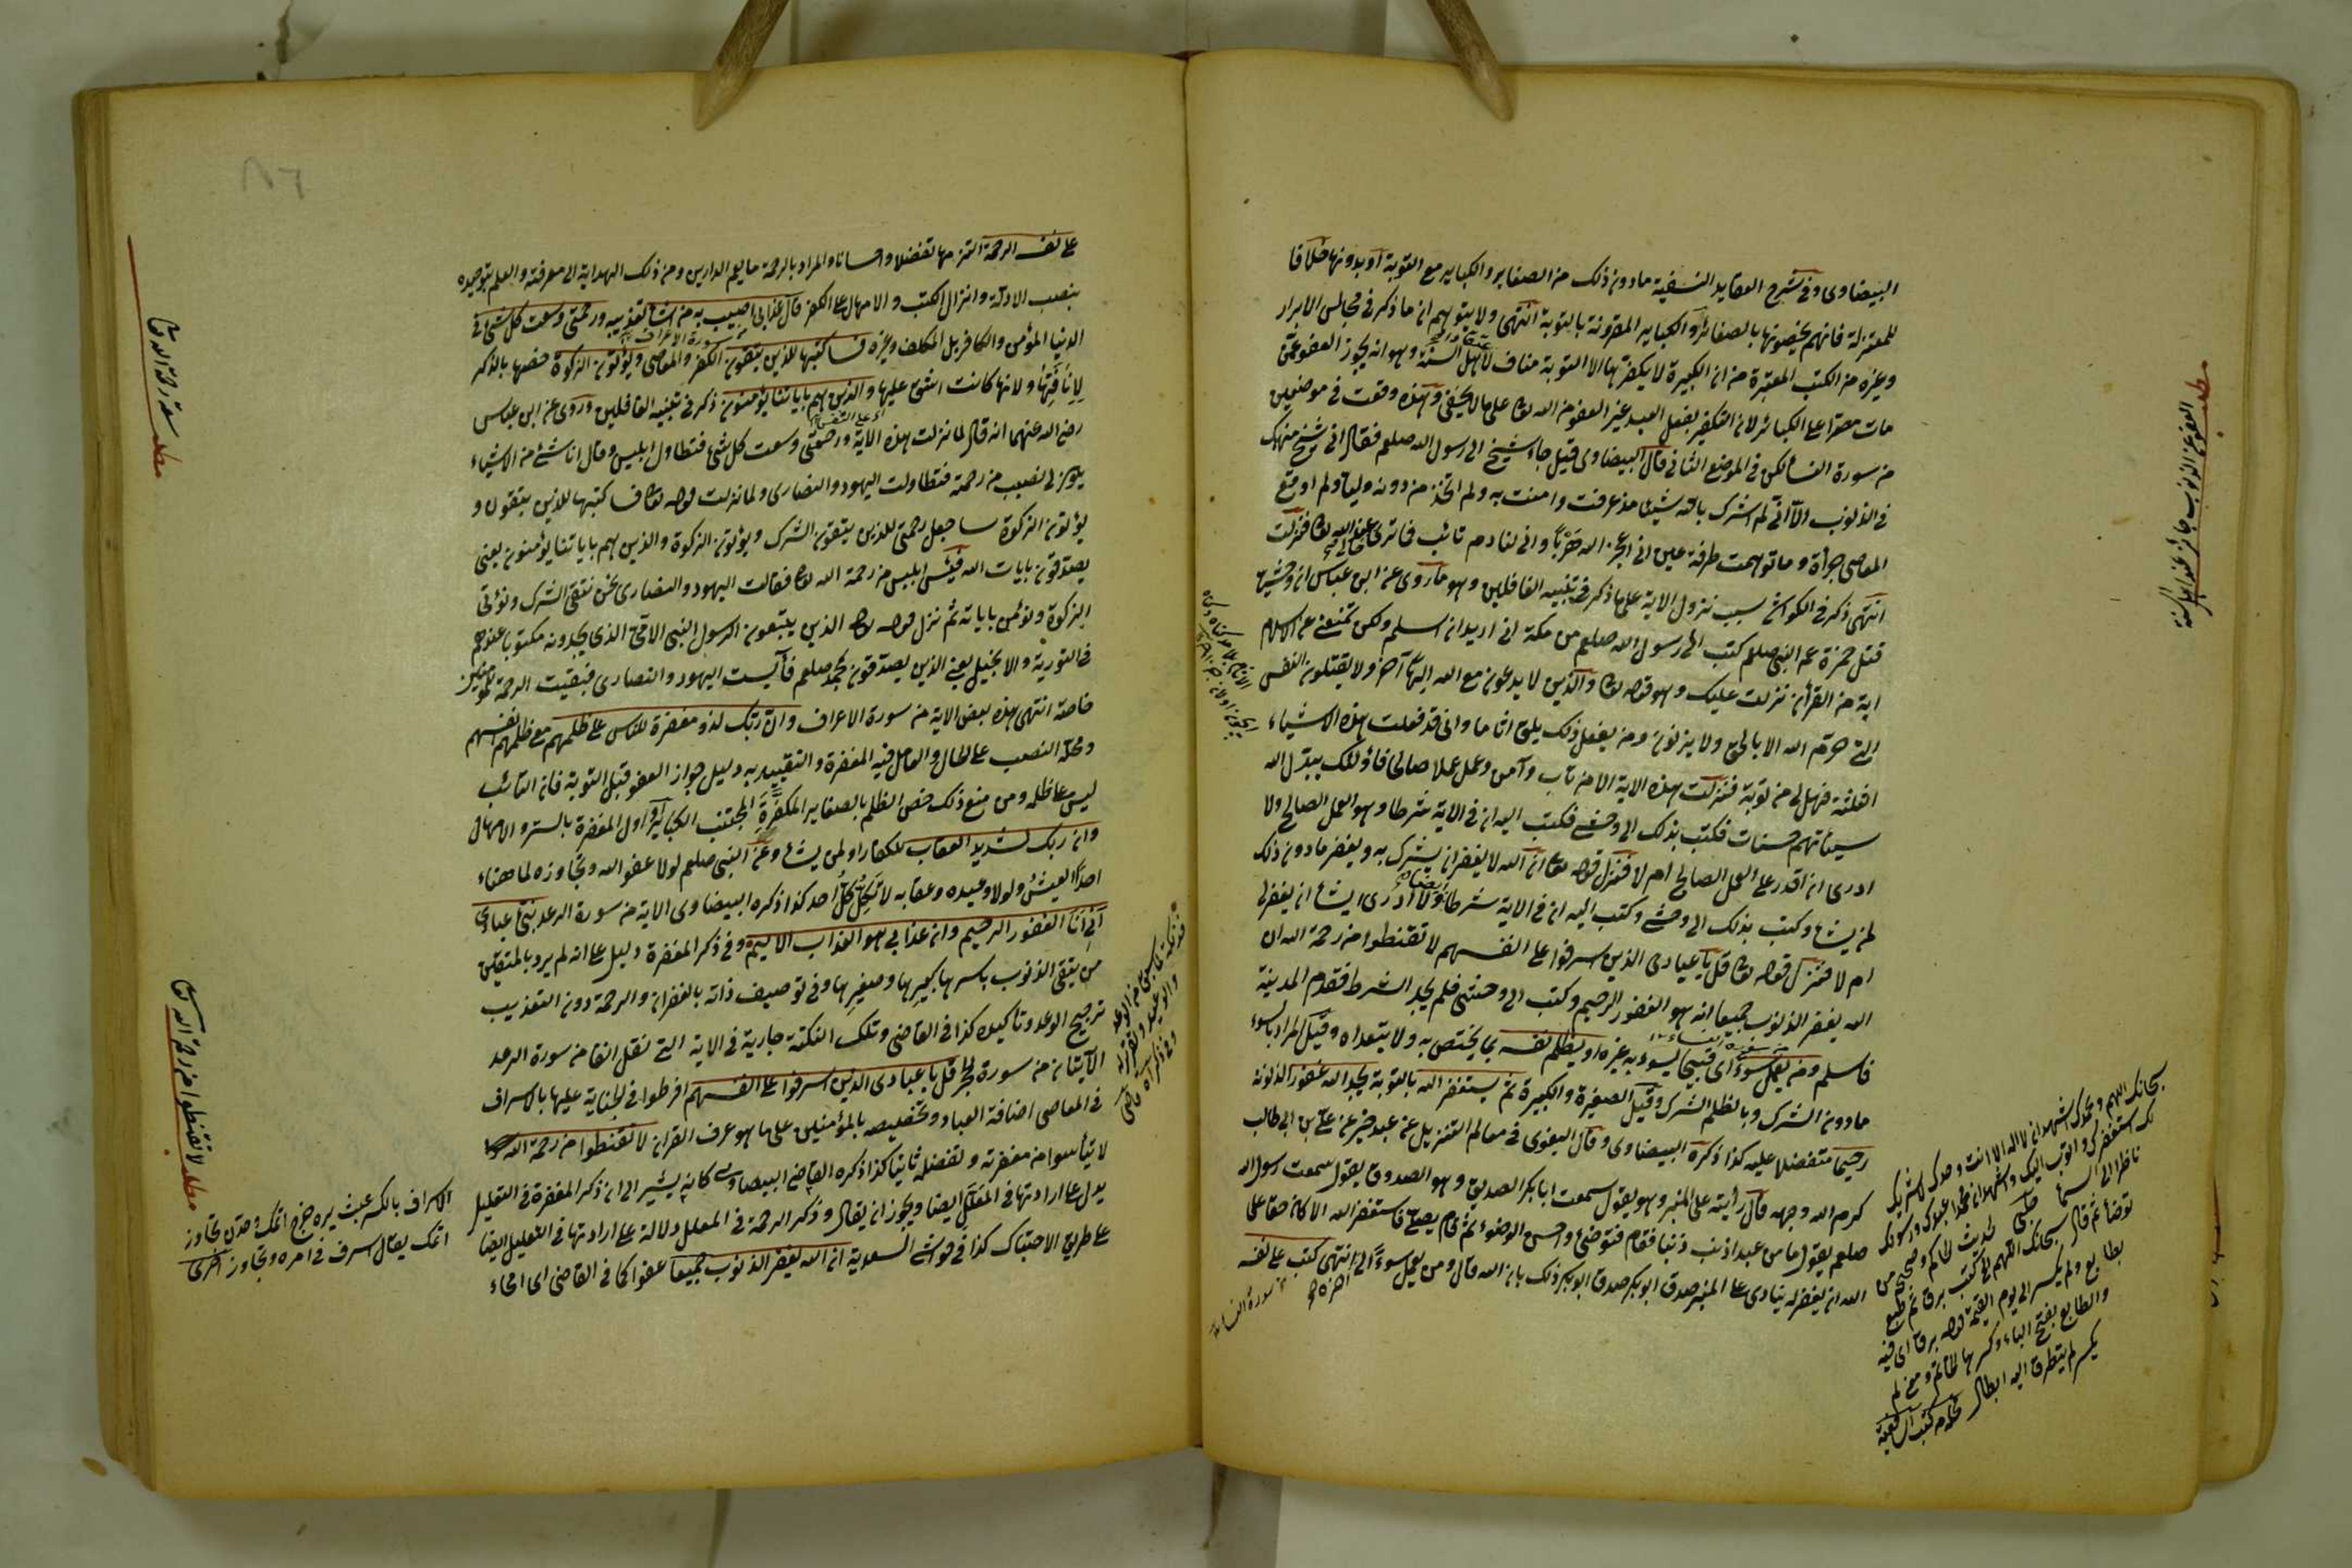 البيضاوى وفى شرح العقايد النسفية مادون ذلك من الصغاير والكباير مع التوبة او بدونها خلافا
للمعتزلة فانهم يخصونها بالصغائر او الكباير المقرونة بالتوبة انتهى ولا يتوهم ان ما ذكر فى مجالس الابرار
وغيره من الكتب المعتبرة من ان الكبيرة لا يكفرها الا التوبة مناف لاهل السنة وهو انه يجوز العفو عمن
مات مصرا على الكبائر لان التكفير بفعل العبد غير العفو من الله تعا على ما لا يخفى وهذه وقعت فى موضعين
من سورة النساء لكن فى الموضع الثانى قال البيضاوى قيل جاء شيخ الى رسول الله صلعم فقال انى شيخ منهمك
فى الذنوب الا انى لم اشرك بالله شيئا منذ عرفته وامنت به ولم اتخذ من دونه وليا ولم اوقع
المعاصى جرأة وما توهمت طرفة عين انى اعجز الله هربا وانى لنادم تائب فما ترى حالى عند الله تعا فنزلت
انتهى ذكر فى الكواشى سبب نزول الاية على ما ذكر فى تنبيه الغافلين وهو ما روى عن ابن عباس ان وحشيا
قتل حمزة عم النبى صلعم كتب الى رسول الله صلعم من مكة انى اريد ان اسلم ولكن تمنعنى عن الاسلام
اية من القرأن نزلت عليك وهو قوله تعا والذين لا يدعون مع الله الها آخر ولا يقتلون النفس
التى حرم الله الا بالحق ولا يزنون ومن يفعل ذلك يلق اثاما وانى قد فعلت هذه الاشياء
الثلثة فهل لى من توبة فنزلت هذه الاية الا من تاب وآمن وعمل عملا صالحا فاولئك يبدل الله
سيئاتهم حسنات فكتب بذلك الى وحشى فكتب اليه ان فى الاية شرطا وهو العمل الصالح ولا
ادرى انا اقدر على العمل الصالح ام لا فنزل قوله تعا ان الله لا يغفر ان يشرك به ويغفر مادون ذلك
لمن يشاء وكتب بذلك الى وحشى وكتب اليه ان فى الاية شرطا ايضا ولا ادرى ايشاء ان يغفر لى
ام لا فنزل قوله تعا قل يا عبادى الذين اسرفوا على انفسهم لا تقنطوا من رحمة الله ان
الله يغفر الذنوب جميعا انه هو الغفور الرحيم وكتب الى وحشى فلم يجد الشرط فقدم المدينة
فاسلم ومن يعمل سوءا اى قبيحا يسوء به غيره او يظلم نفسه بما يختص به ولا يتعداه وقيل المراد بالسوء
مادون الشرك وبالظلم الشرك وقيل الصغيرة والكبيرة ثم يستغفر الله بالتوبة يجد الله غفورا لذنوبه
رحيما متفضلا عليه كذا ذكره البيضاوى وقال البغوى فى معالم التنزيل عن عبد خير عن على بن ابى طالب
كرم الله وجهه قال رأيته على المنبر وهو يقول سمعت ابا بكر الصديق وهو الصدوق يقول سمعت رسول الله
صلعم يقول ما من عبد اذنب ذنبا فقام فتوضئ واحسن الوضوء ثم قام يصلى فاستغفر الله الا كان حقا على
الله ان يغفر له ينادى على المنبر صدق ابو بكر صدق ابو بكر ذلك بان الله قال ومن يعمل سوءا الى آخره انتهى كتب على نفسه
مطلب العفو عن الذنوب جائز عند اهل السنة
سبحانك اللهم وبحمدك اشهد ان لا اله الا انت وحدك لا شريك
لك استغفرك واتوب اليك واشهد ان محمدا عبدك ورسولك
ناظرا الى السماء
توضأ ثم قال سبحانك اللهم الخ كتب برق ثم طبع
بطابع ولم يكسر الى يوم القيمة قوله برق اى فيه
والطابع بفتح الباء وكسرها الخاتم ومعنى لم
يكسر لم يتطرق اليه ابطال
على نفسه الرحمة التزمها تفضلا واحسانا والمراد بالرحمة ما يعم الدارين ومن ذلك الهداية الى معرفته والعلم بتوحيده
بنصب الادلة وانزال الكتب والامهال على الكفر قال عذابى اصيب به من اشاء تعذيبه ورحمتى وسعت كل شئ فى
سورة الاعراف
الدنيا المؤمن والكافر بل المكلف وغيره فساكتبها للذين يتقون الكفر والمعاصى ويؤتون الزكوة خصها بالذكر
لانافتها ولانها كانت اشق عليهم والذين هم بآياتنا يؤمنون ذكر فى تنبيه الغافلين وروى عن ابن عباس
رضى الله عنهما انه قال لما نزلت هذه الاية ورحمتى وسعت كل شئ فتطاول ابليس وقال انا شئ من الاشياء
يكون لى نصيب من رحمته فتطاولت اليهود والنصارى ولما نزلت قوله تعا فساكتبها للذين يتقون و
يؤتون الزكوة ساجعل رحمتى للذين يتقون الشرك ويؤتون الزكوة والذين هم بآياتنا يؤمنون يعنى
يصدقون بايات الله فيئس ابليس من رحمة الله تعا فقالت اليهود والنصارى نحن نتقى الشرك ونؤتى
الزكوة ونؤمن باياته ثم نزل قوله تعا الذين يتبعون الرسول النبى الامى الذى يجدونه مكتوبا عندهم
فى التورية والانجيل يعنى الذين يصدقون بمحمد صلعم فآيست اليهود والنصارى فبقيت الرحمة للمؤمنين
خاصة انتهى هذه بعض الاية من سورة الاعراف وان ربك لذو مغفرة للناس على ظلمهم مع ظلمهم انفسهم
ومحله النصب على الحال والعامل فيه المغفرة والتقييد به دليل جواز العفو قبل التوبة فان التائب
ليس على ظلمه ومن منع ذلك خص الظلم بالصغاير المكفرة لمجتنب الكبائر او اول المغفرة بالستر والامهال
وان ربك لشديد العقاب للكفار او لمن يشاء وعن النبى صلعم لولا عفو الله وتجاوزه لما هنأ
احدا العيش ولولا وعيده وعقابه لاتكل كل احد كذا ذكره البيضاوى الاية من سورة الرعد نبئ عبادى
انى انا الغفور الرحيم وان عذابى هو العذاب الاليم وفى ذكر المغفرة دليل على انه لم يرد بالمتقين
من يتقى الذنوب باسرها كبيرها وصغيرها وفى توصيف ذاته بالغفران والرحمة دون التعذيب
ترجيح الوعد وتأكيده كذا فى القاضى وتلك النكتة جارية فى الاية التى نقل انفا من سورة الرعد
الآيتان من سورة الحجر قل يا عبادى الذين اسرفوا على انفسهم افرطوا فى الجناية عليها بالاسراف
فى المعاصى اضافة العباد وتخصيصه بالمؤمنين على ما هو عرف القران لا تقنطوا من رحمة الله
لا تيأسوا من مغفرته وتفضله ثانيا كذا ذكره القاضى البيضاوى كانه يشير الى ان ذكر المغفرة فى التعليل
يدل على ارادتها فى المعلل ايضا ويجوز ان يقال وذكر الرحمة فى المعلل دلالة على ارادتها فى التعليل ايضا
على طريق الاحتباك كذا فى حواشى السعدية ان الله يغفر الذنوب جميعا عفوا كما فى القاضى اى امحاء
مطلب سعة رحمة الله تعا
مطلب لا تقنطوا من رحمة الله تعا
الاسراف بالكسر عبث يره خرج اتمك وحددن تجاوز
اتمك يقال اسرف فى امره وتجاوز اخرى
٨٦